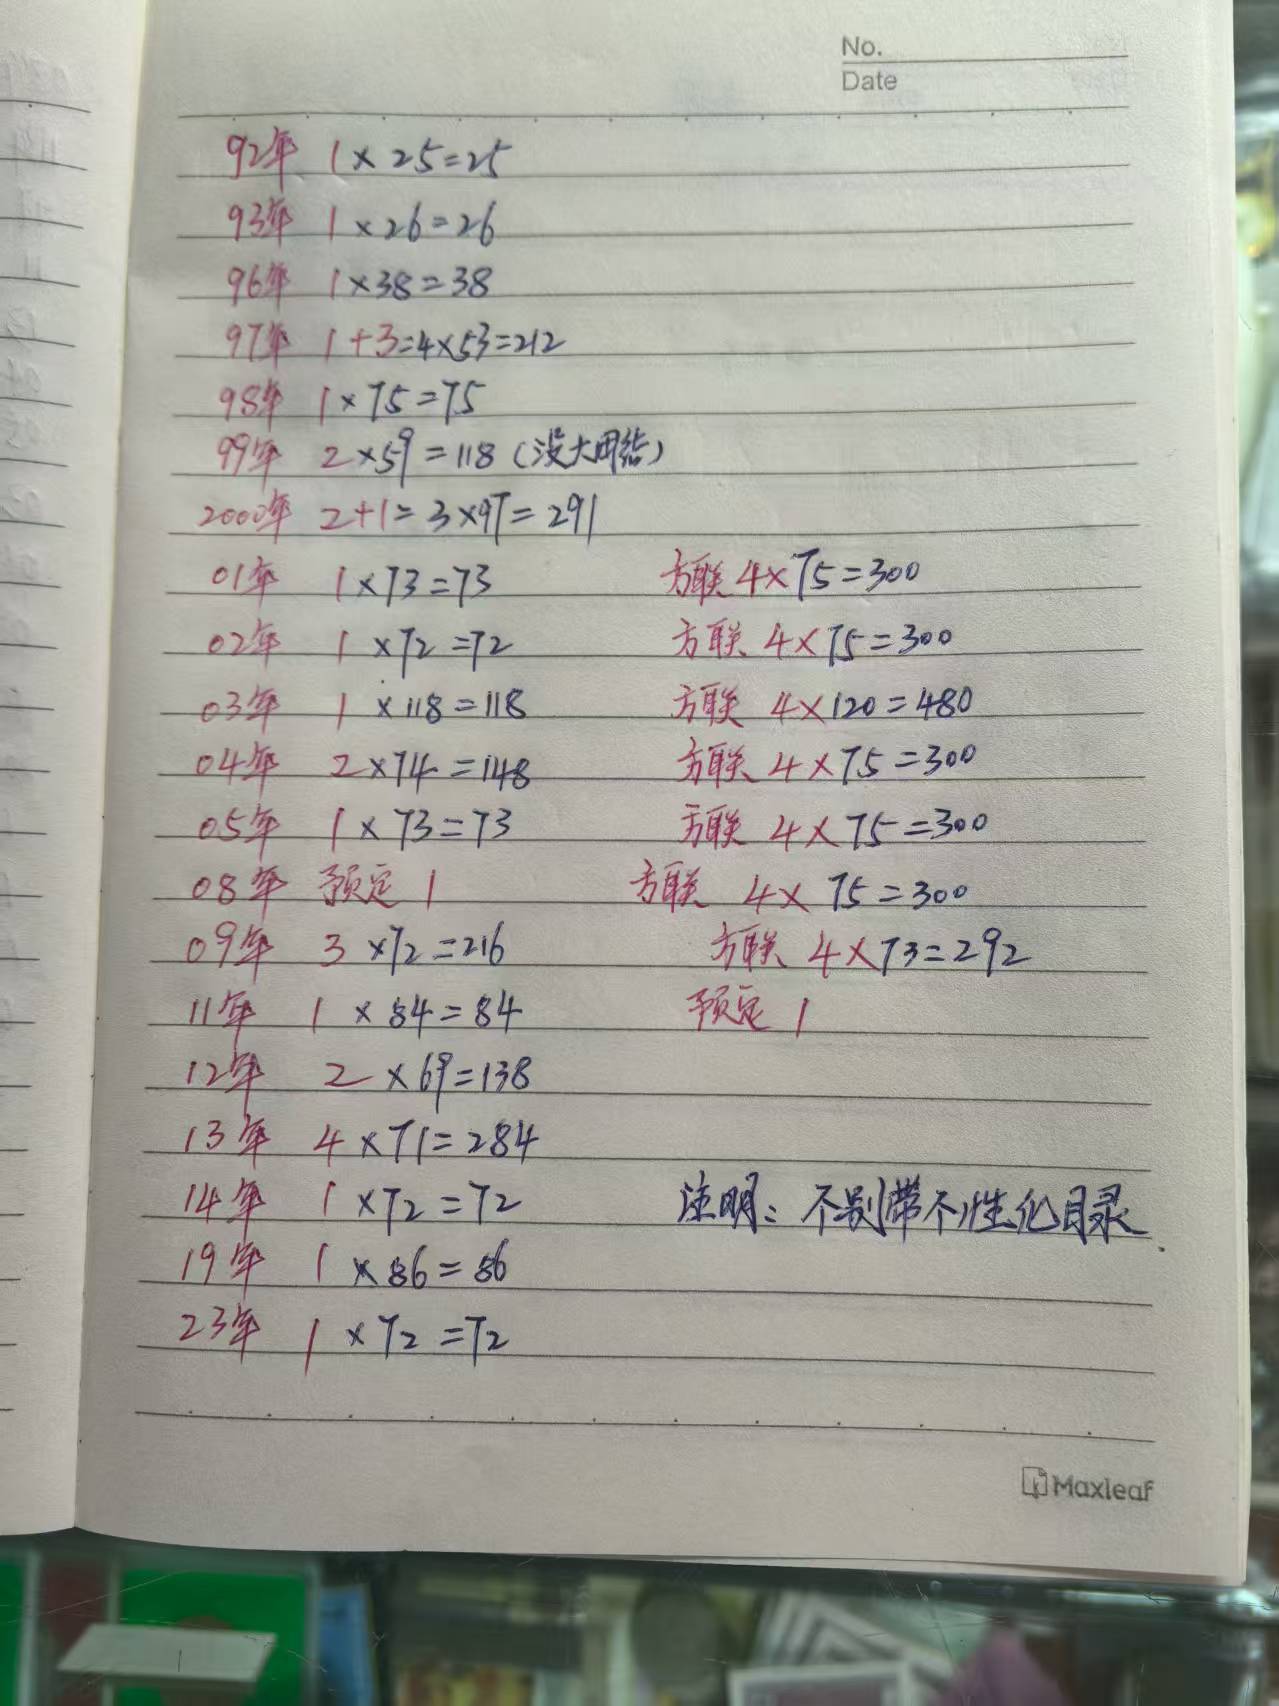 No.
Date
92年 1×25=25
93年 1×26=26
96年 1×38=38
97年 1+3=4×53=212
98年 1×75=75
99年 2×59=118(没大团结)
2000年 2+1=3×97=291
01年 1×73=73 方联 4×75=300
02年 1×72=72 方联 4×75=300
03年 1×118=118 方联 4×120=480
04年 2×74=148 方联 4×75=300
05年 1×73=73 方联 4×75=300
08年 预定 1 方联 4×75=300
09年 3×72=216 方联 4×73=292
11年 1×84=84 预定 1
12年 2×69=138
13年 4×71=284
14年 1×72=72 注明：不别带不性化目录
19年 1×86=86
23年 1×72=72
Maxleaf